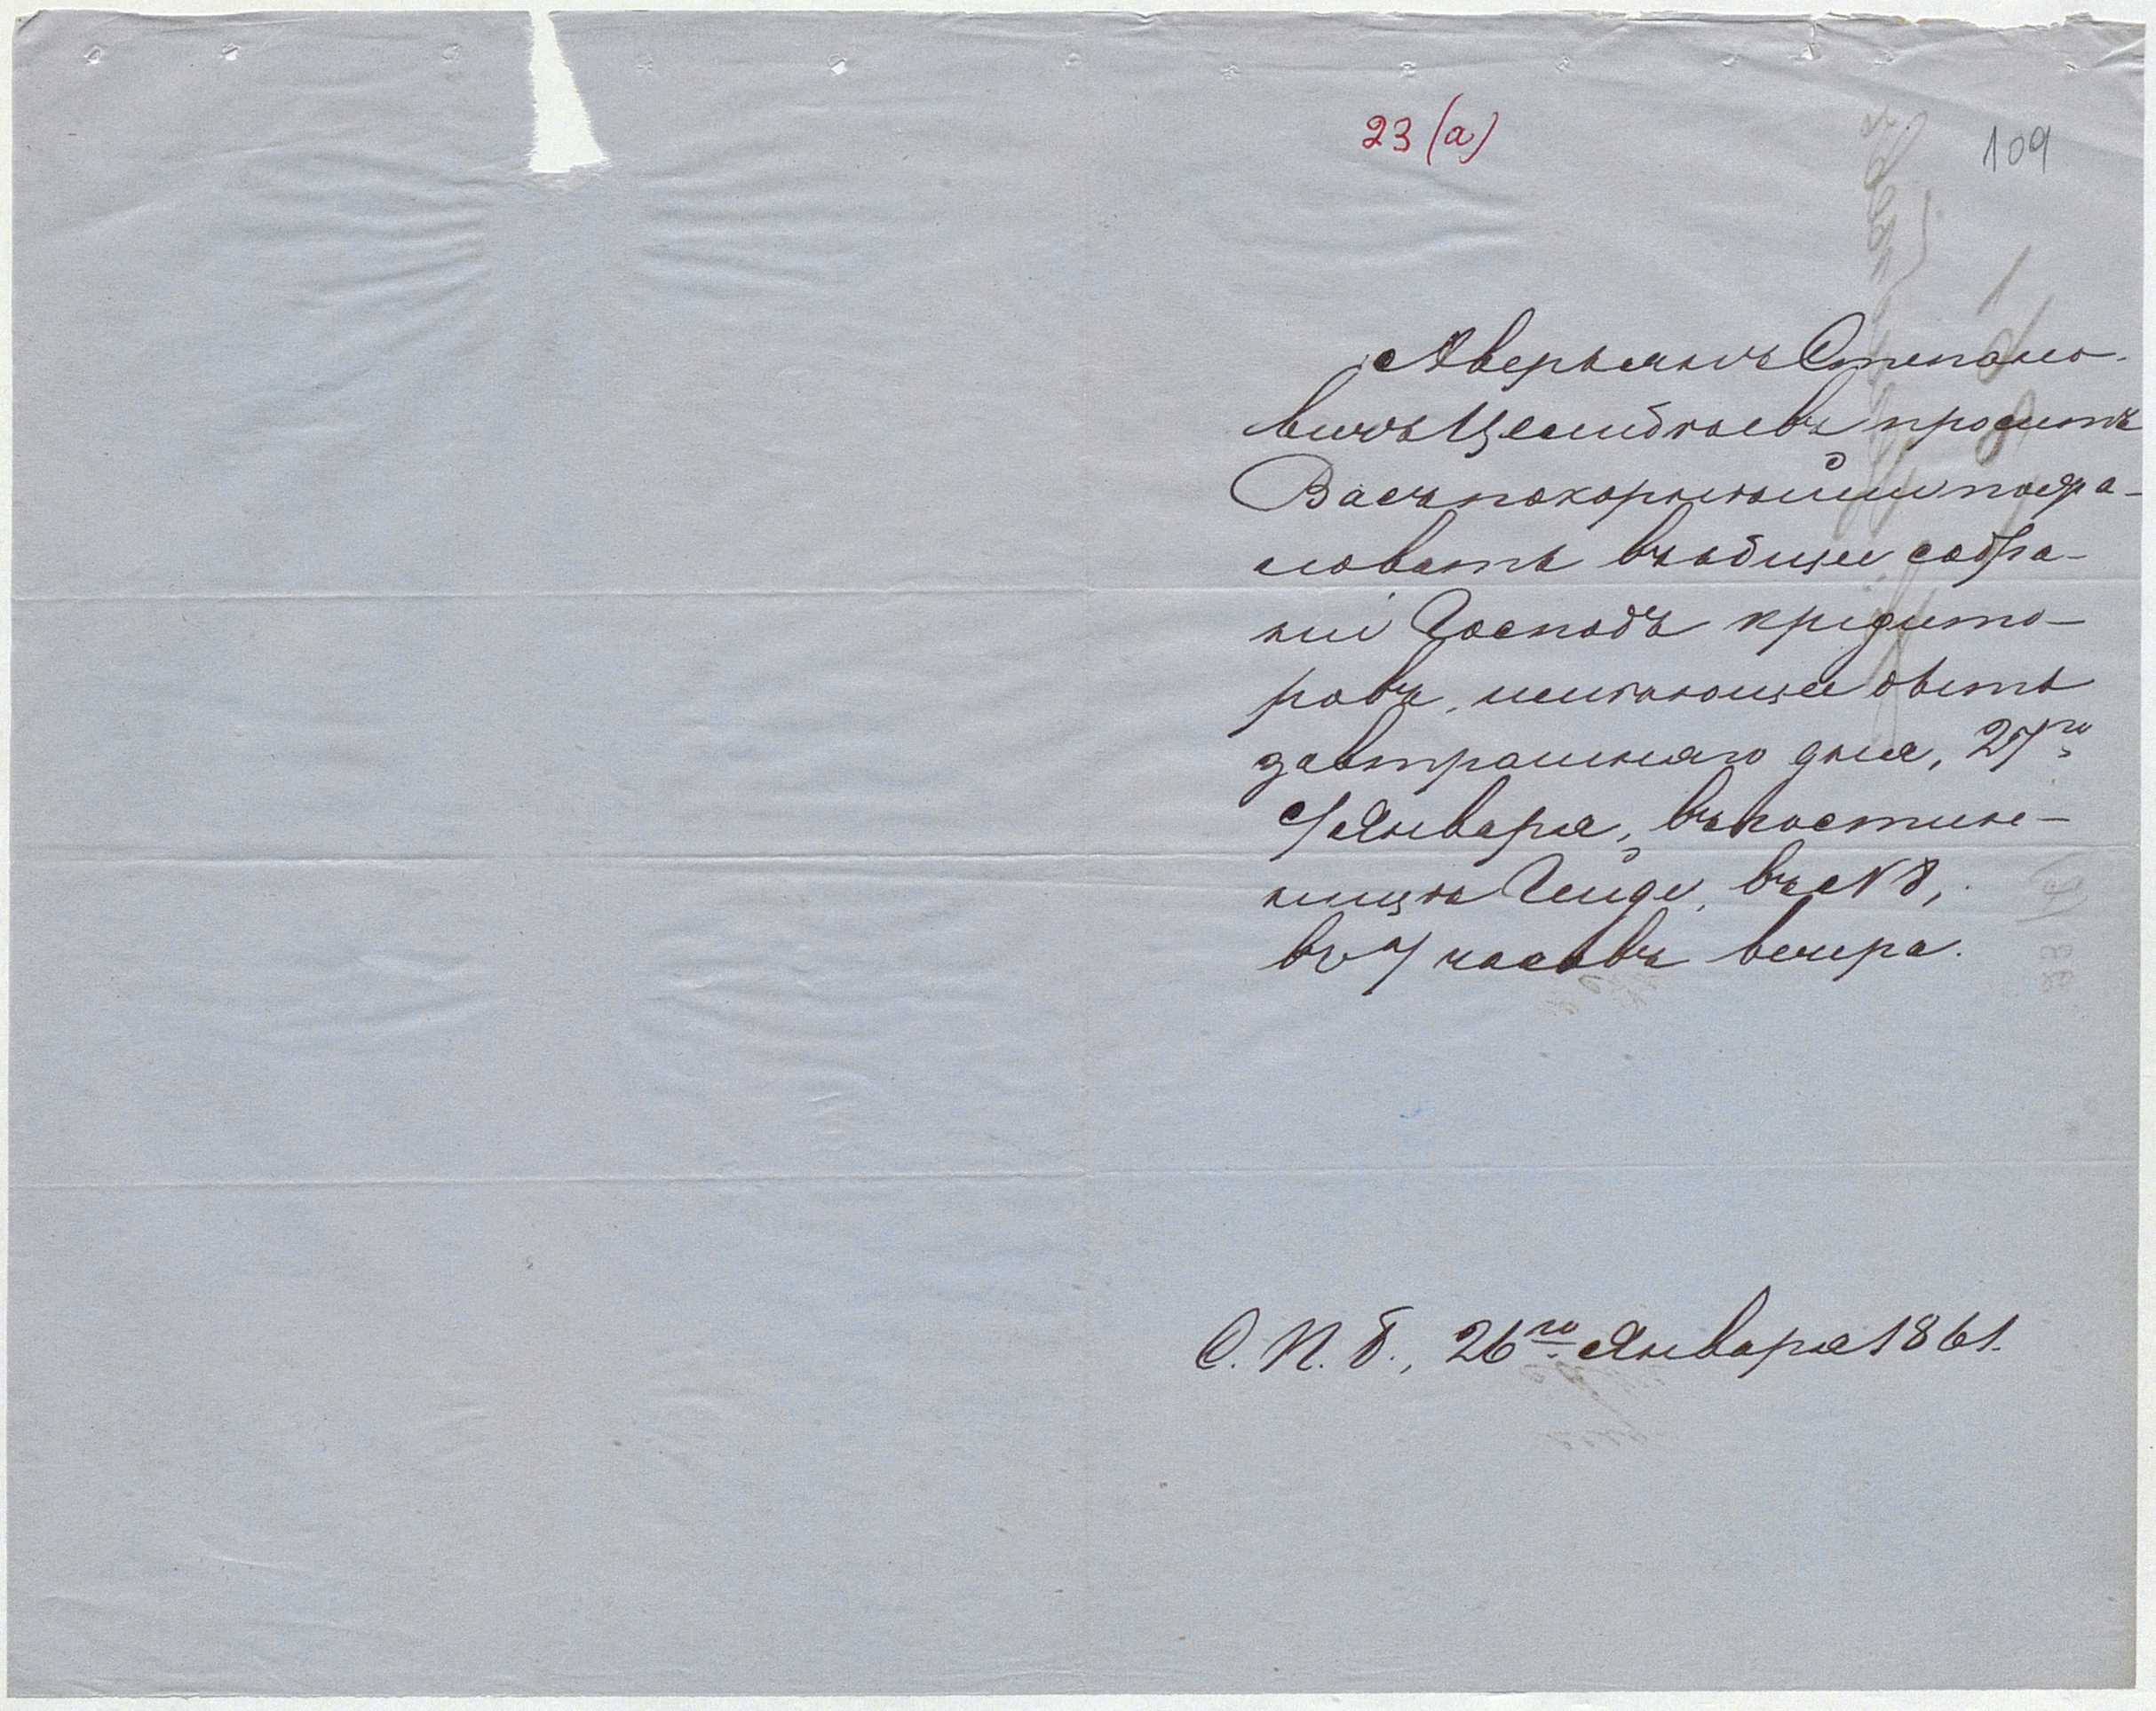 23 (а)
109
Аверьянъ Степано-
вичъ проситъ
Васъ покорнѣйше пожа-
ловать въ общее собра-
ніе Господъ кредито-
ровъ, имѣющее быть
завтрашняго дня, 27го
Января, въ гостин-
ницѣ Гейде, въ № 8,
въ 7 часовъ вечера.
С. П. Б., 26го Января 1861.